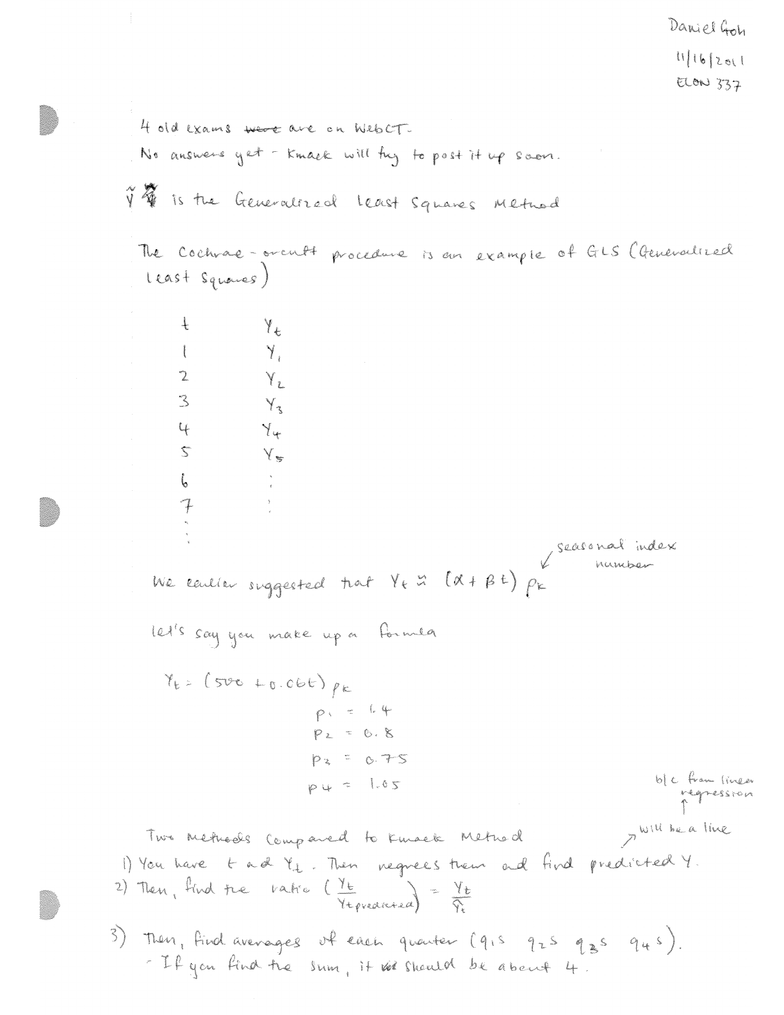 Daniel Goh
11/16/2011
ECON 337
4 old exams were are on WebCT.
No answers yet - Kmack will try to post it up soon.
Ỹ is the Generalized Least Squares Method
The Cochrae-orcutt procedure is an example of GLS (Generalized
Least Squares)
t Yt
1 Y1
2 Y2
3 Y3
4 Y4
5 Y5
6 ⋮
7 ⋮
⋮
seasonal index
number
We earlier suggested that Yt ≈ (α + βt) pk
let's say you make up a formula
Yt = (500 + 0.06t) pk
p1 = 1.4
p2 = 0.8
p3 = 0.75
p4 = 1.05
b/c from linear
regression
↑
will be a line
Two Methods Compared to Kmack Method
1) You have t ad Yt. Then regrees them and find predicted Y.
2) Then, find the ratio (Yt / Yt predicted) = Yt / Ŷt
3) Then, find averages of each quarter (q1s q2s q3s q4s).
- If you find the sum, it should be about 4.